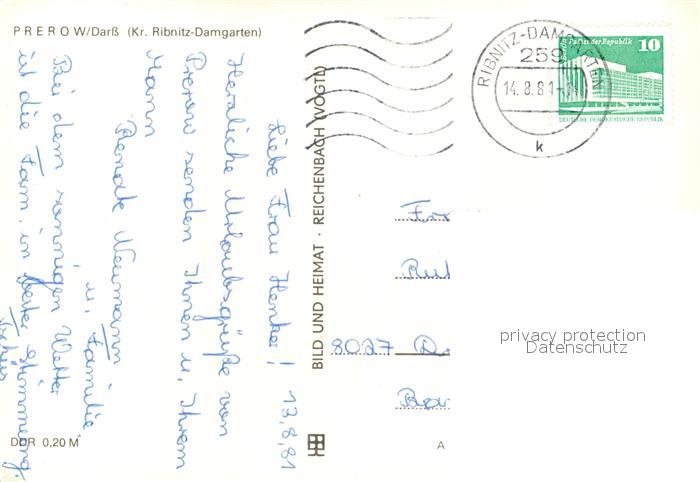 PREROW/Darß (Kr. Ribnitz-Damgarten)
13.8.81
Liebe Frau Henker!
Herzliche Urlaubsgrüße von
Prerow senden Ihnen u. Ihrem
Mann
Renate Neumann
u. Familie
Bei dem sonnigen Wetter
ist die Fam. in bester Stimmung.
Tschüs
DDR 0,20 M
BILD UND HEIMAT · REICHENBACH (VOGTL)
RIBNITZ-DAMGARTEN
259
14.8.81
k
Palast der Republik 10
DEUTSCHE DEMOKRATISCHE REPUBLIK
8027 D
privacy protection
Datenschutz
A